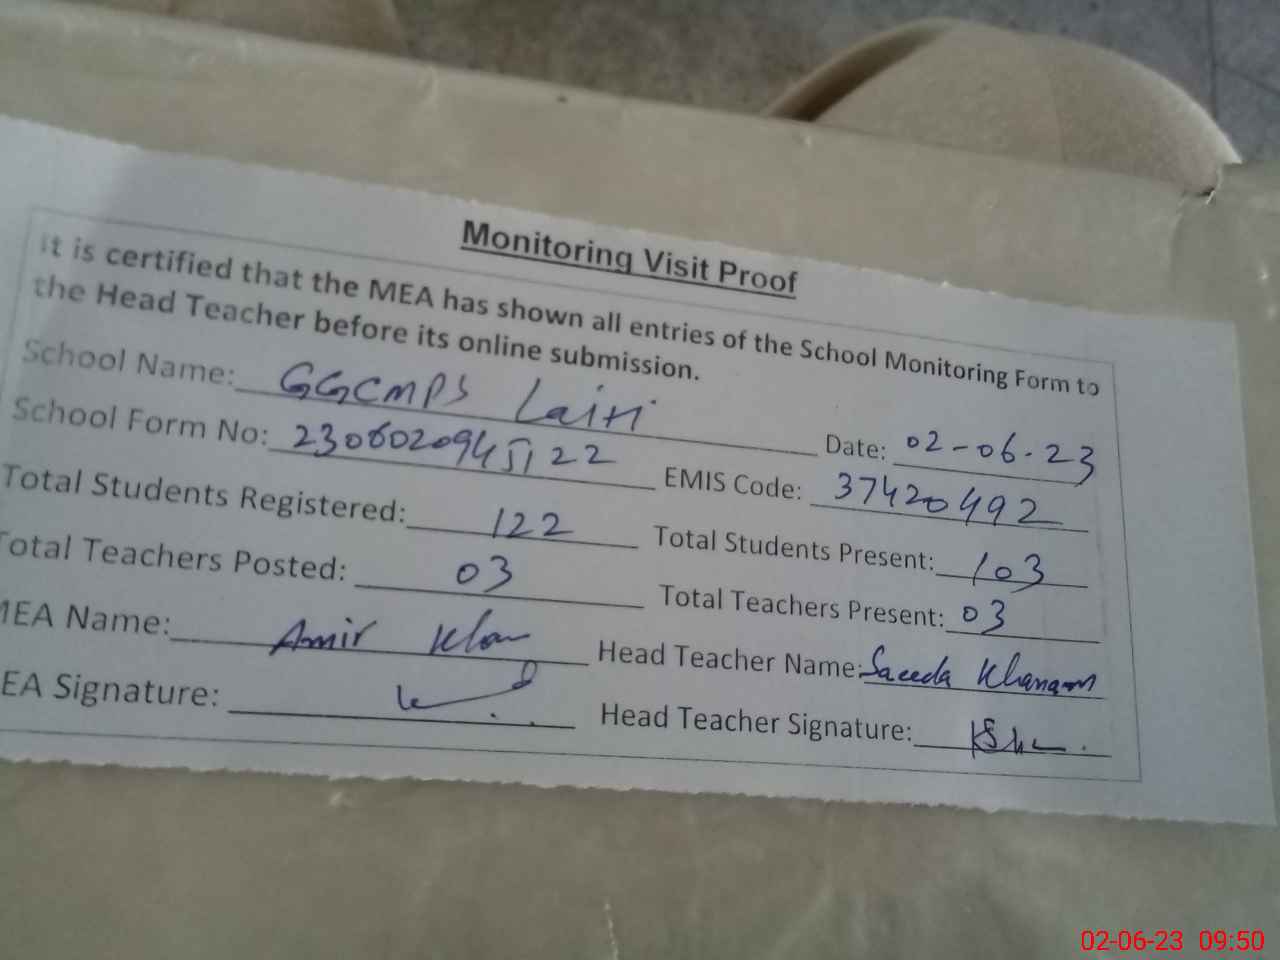 Monitoring Visit Proof
It is certified that the MEA has shown all entries of the School Monitoring Form to
the Head Teacher before its online submission.
School Name: GGCMPS Laiti Date: 02-06-23
School Form No: 2306020945122 EMIS Code: 37420492
Total Students Registered: 122 Total Students Present: 103
Total Teachers Posted: 03 Total Teachers Present: 03
MEA Name: Amir Khan Head Teacher Name: Saeeda Khanam
EA Signature: Head Teacher Signature:
02-06-23 09:50